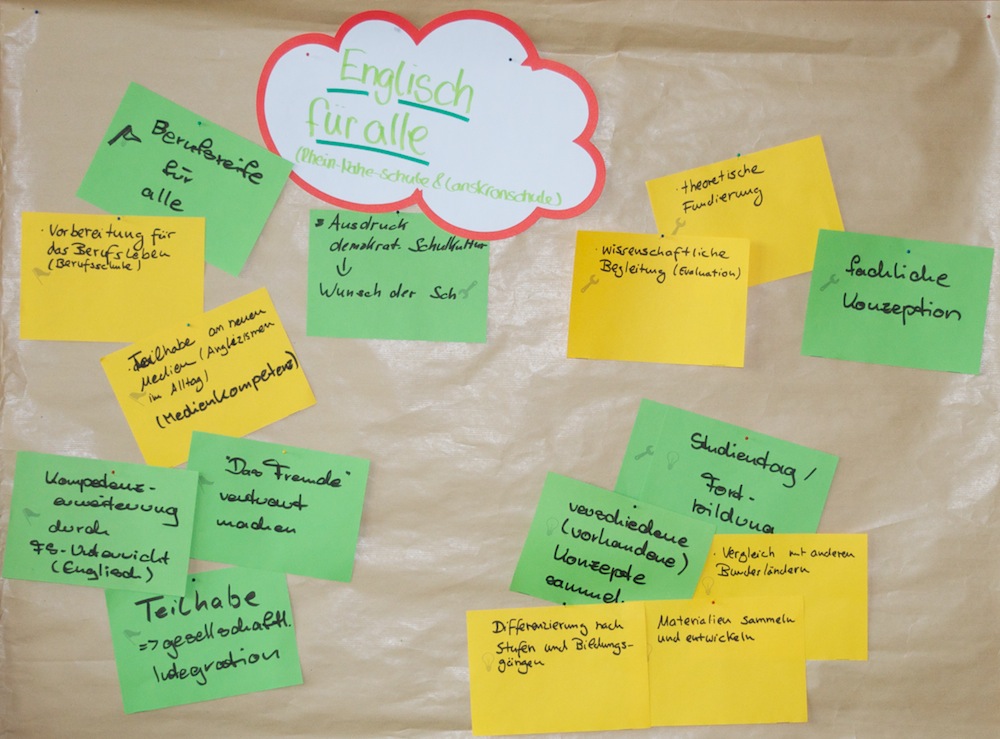 Englisch
für alle
(Rhein-Nahe-Schule & Lanskronschule)
Berufsreife
für
alle
· Vorbereitung für
das Berufsleben
(Berufsschule)
Ausdruck
demokrat. Schulkultur
↓
Wunsch der Sch
· Teilhabe an neuen
Medien (Anglizismen
im Alltag)
(Medienkompetenz)
· theoretische
Fundierung
· wissenschaftliche
Begleitung (Evaluation)
fachliche
Konzeption
Kompetenz-
erweiterung
durch
FS-Unterricht
(Englisch)
"Das Fremde"
vertraut
machen
Teilhabe
=> gesellschaftl.
Integration
Studientag /
Fort-
bildung
verschiedene
(vorhandene)
Konzepte
sammel.
· Vergleich mit anderen
Bundesländern
Differenzierung nach
Stufen und Bildungs-
gängen
Materialien sammeln
und entwickeln